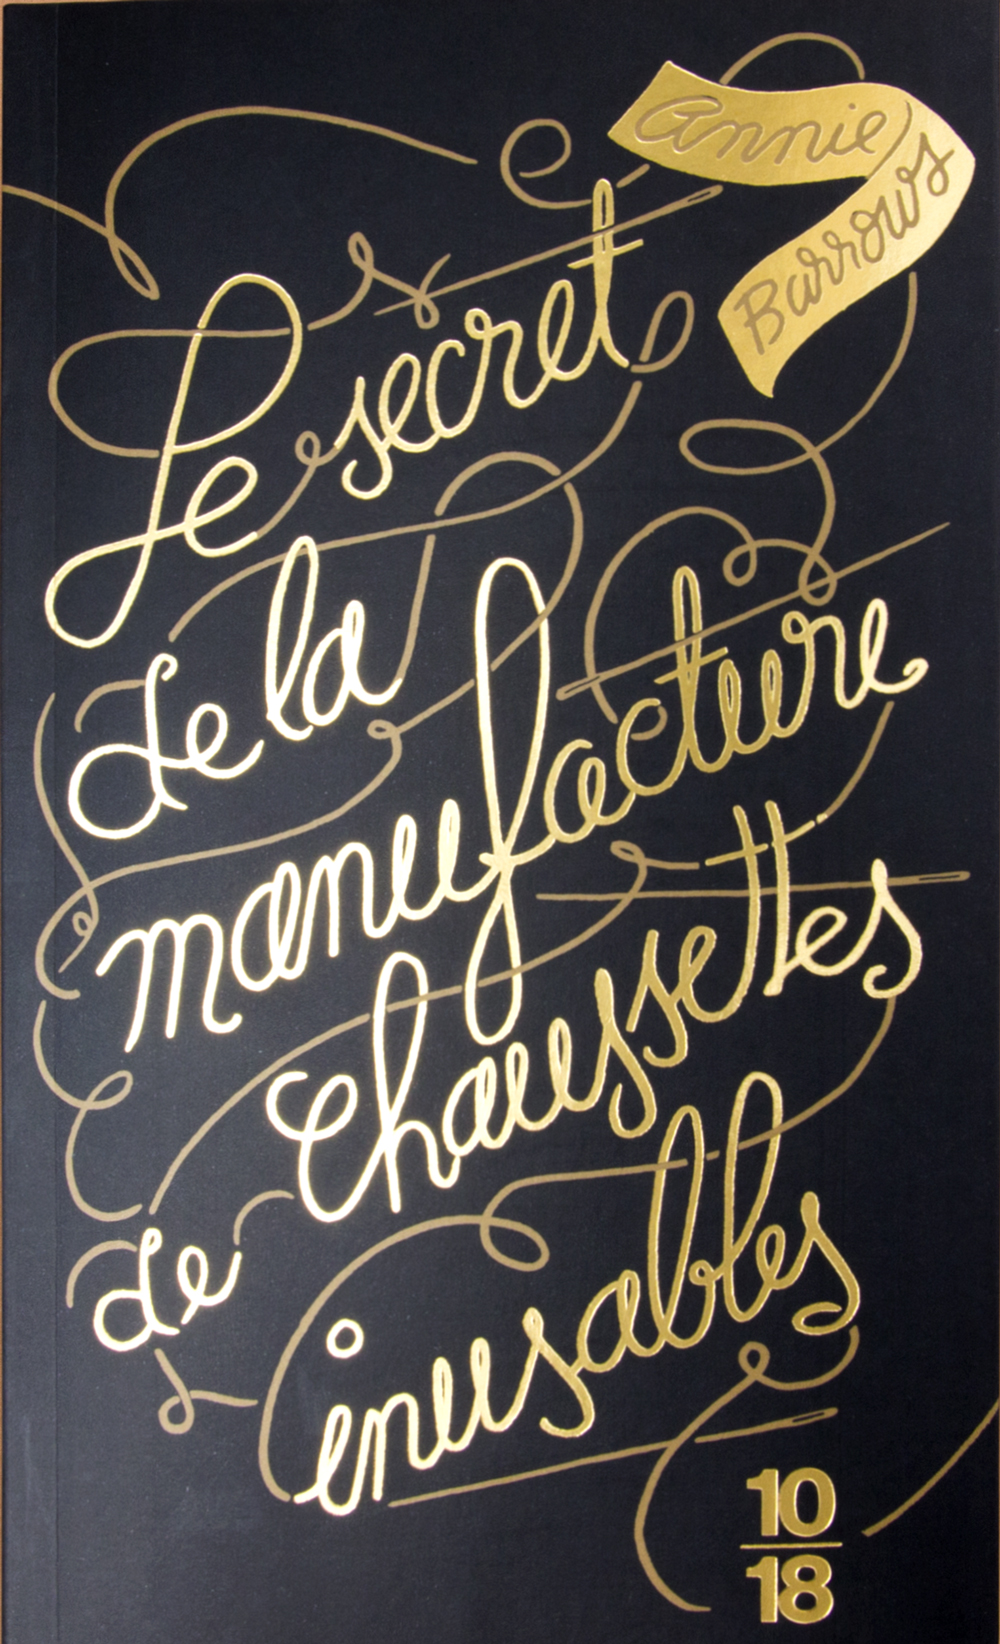 Annie
Barrows
Le secret
de la
manufacture
de chaussettes
inusables
10
18